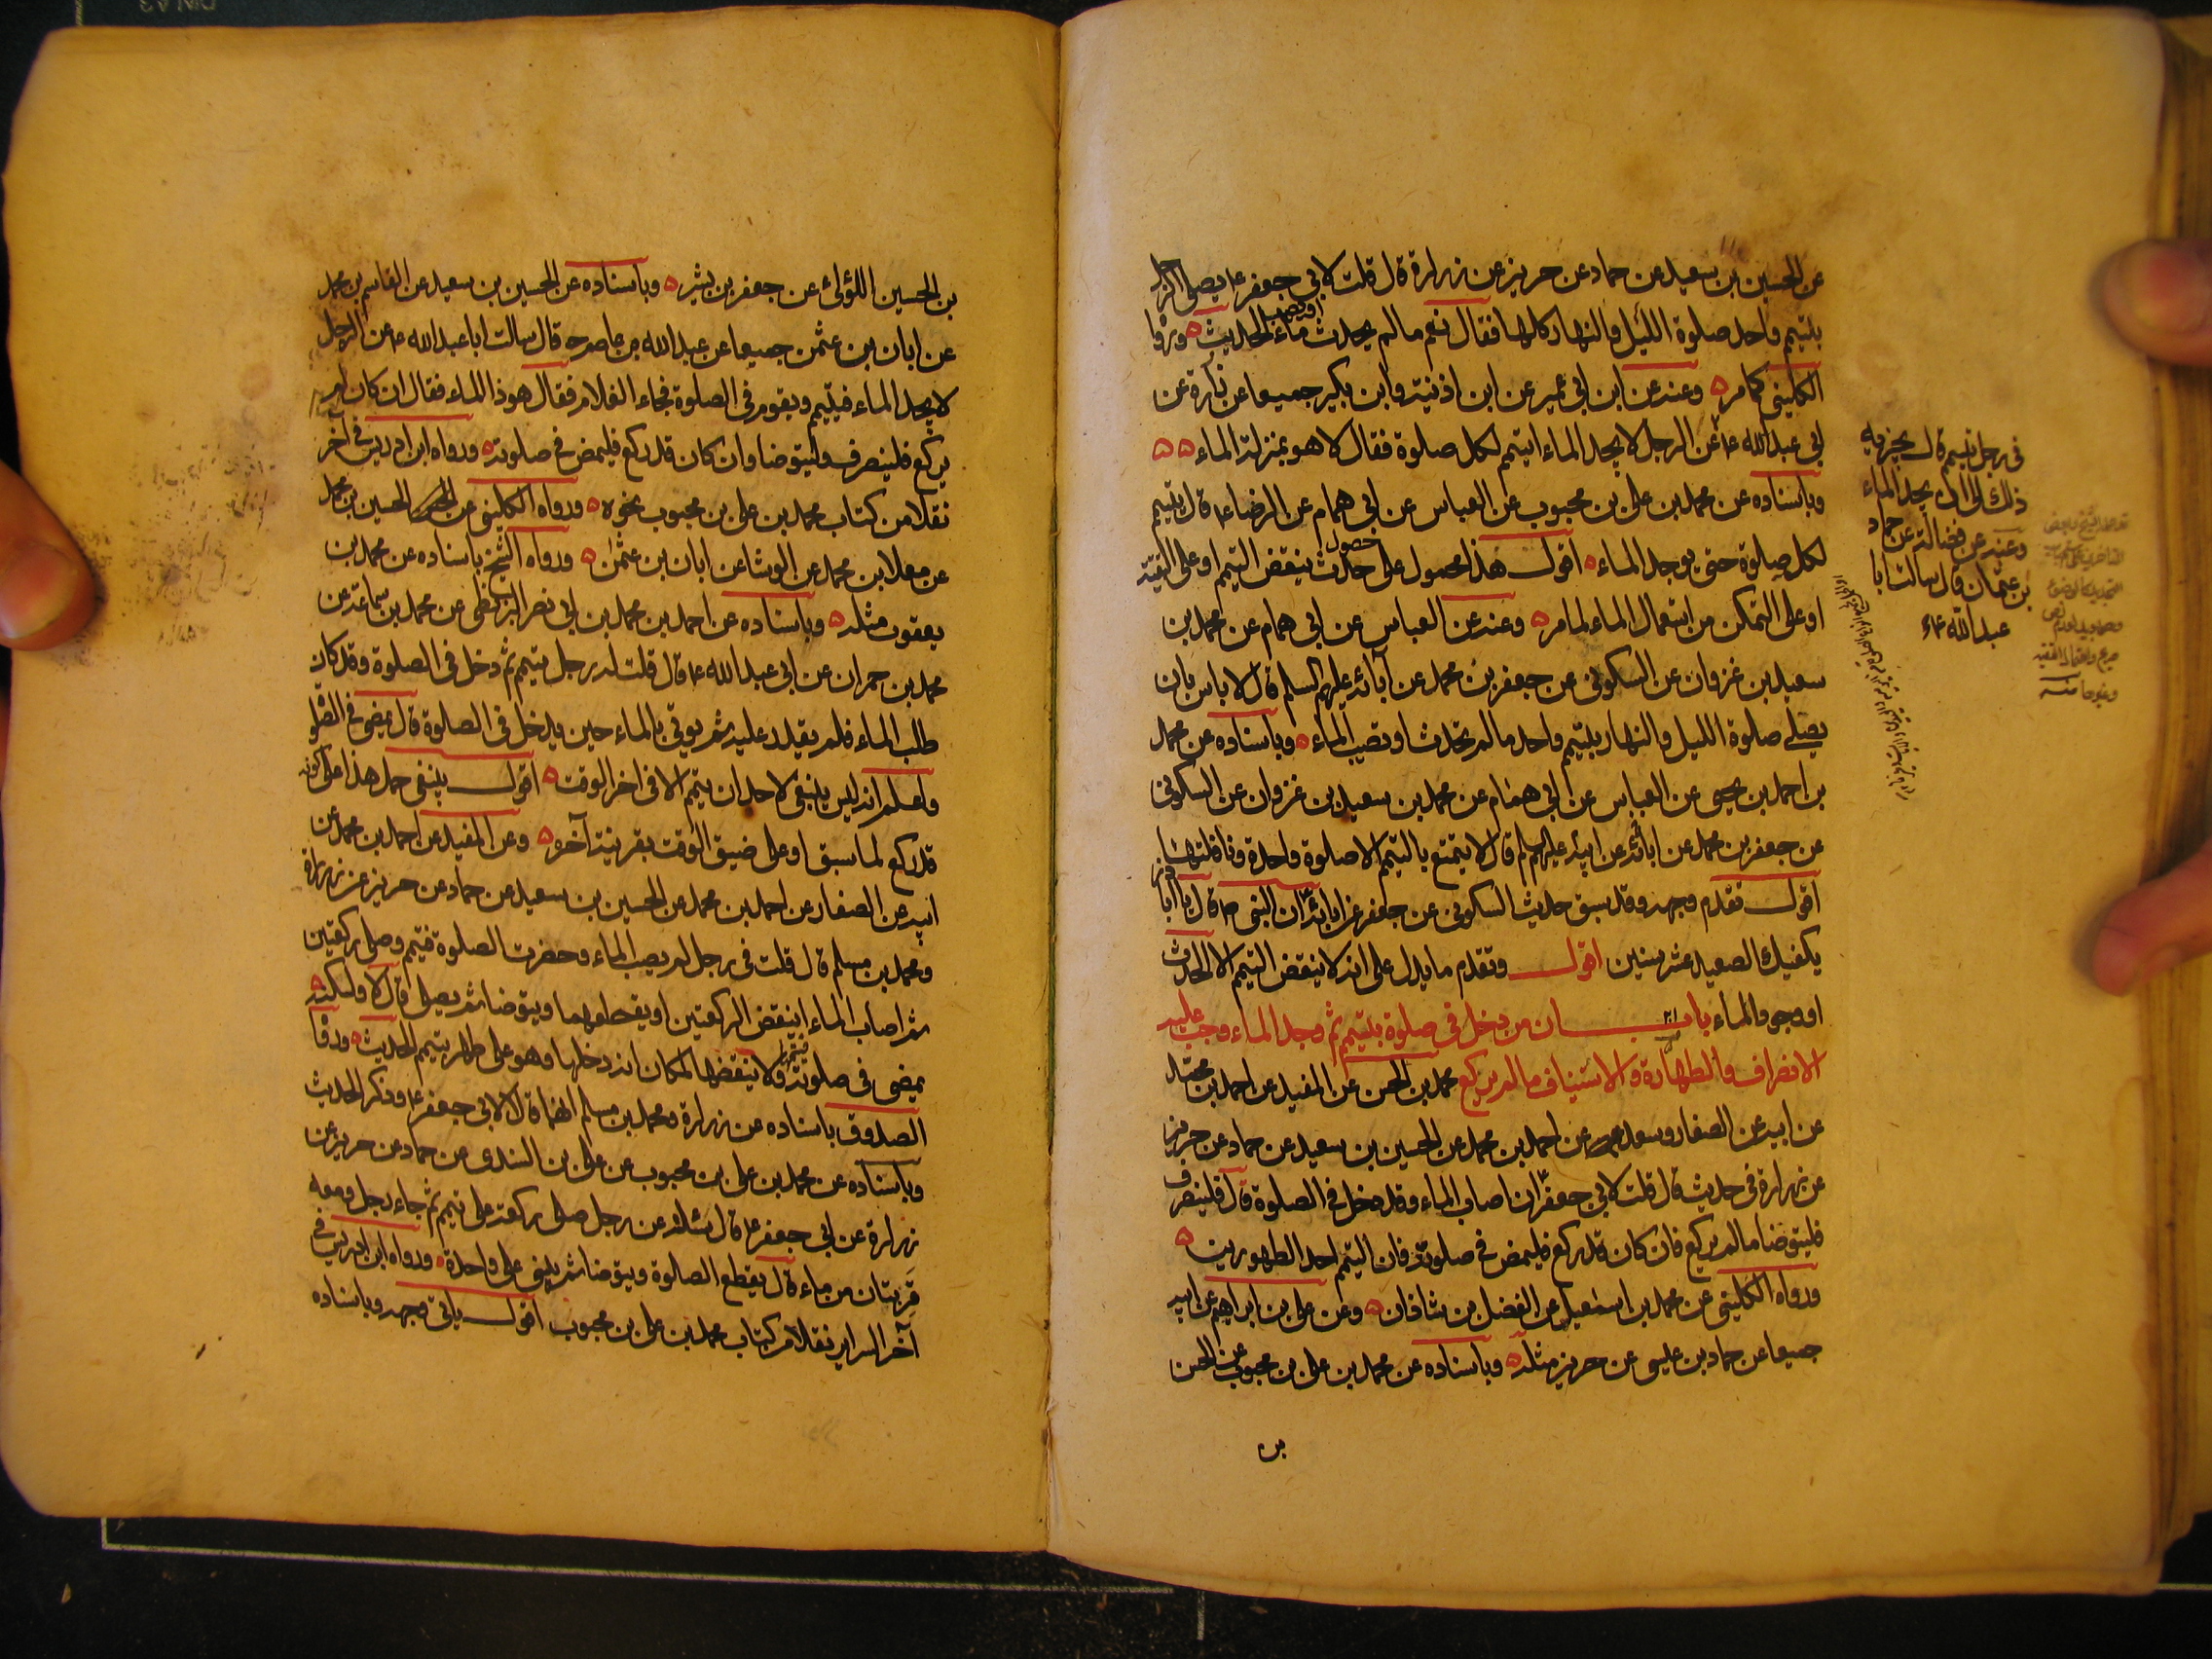 عن الحسين بن سعيد عن حماد عن حريز عن زرارة قال قلت لابي جعفر ع يصلى الرجل
بتيمم واحد صلوة الليل والنهار كلها فقال نعم ما لم يحدث او يصب ماء الحديث ورواه
الكلينى كما مر وعنه عن ابن ابي عمير عن ابن اذينة وابن بكير جميعا عن زرارة عن
ابي عبد الله ع عن الرجل لا يجد الماء ايتيمم لكل صلوة فقال لا هو بمنزلة الماء
وباسناده عن محمد بن على بن محبوب عن العباس عن ابي همام عن الرضا ع قال يتيمم
لكل صلوة حتى يوجد الماء اقول هذا محمول على حصول حدث ينقض التيمم او على التقية
او على التمكن من استعمال الماء لما مر وعنه عن العباس عن ابي همام عن محمد بن
سعيد بن غزوان عن السكونى عن جعفر بن محمد عن آبائه عليهم السلم قال لا باس بان
يصلى صلوة الليل والنهار بتيمم واحد ما لم تحدث او تصيب الماء وباسناده عن محمد
بن احمد بن يحيى عن العباس عن ابي همام عن محمد بن سعيد بن غزوان عن السكونى
عن جعفر بن محمد عن ابائه عن ابيه عليهم سلم قال لا يتمتع بالتيمم الا صلوة واحدة ونافلتها
اقول تقدم وجهه وقد سبق حديث السكونى عن جعفر عن ابائه ان النبى ص قال يا ابا ذر
يكفيك الصعيد عشر سنين اقول وتقدم ما يدل على انه لا ينقض التيمم الا الحدث
او وجود الماء باب ان من دخل فى صلوة بتيمم ثم وجد الماء وجب عليه
الانصراف والطهارة والاستيناف ما لم يركع محمد بن الحسن عن المفيد عن احمد بن محمد
عن ابيه عن الصفار وسعد عن احمد بن محمد عن الحسين بن سعيد عن حماد عن حريز
عن زرارة فى حديث قال قلت لابي جعفر ع ان اصاب الماء وقد دخل فى الصلوة قال فلينصرف
فليتوضا ما لم يركع فان كان قد ركع فليمض فى صلوته فان التيمم احد الطهورين
ورواه الكلينى عن محمد بن اسمعيل عن الفضل بن شاذان وعن على بن ابراهيم عن ابيه
جميعا عن حماد بن عيسى عن حريز مثله وباسناده عن محمد بن على بن محبوب عن الحسن
فى رجل تيمم قال يجزيه
ذلك الى ان يجد الماء
وعنه عن فضالة عن حماد
بن عثمان قال سالت ابا
عبد الله ع
بن الحسين اللؤلؤى عن جعفر بن بشير وباسناده عن الحسين بن سعيد عن القاسم بن محمد
عن ابان بن عثمن جميعا عن عبد الله بن عاصم قال سالت ابا عبد الله ع عن الرجل
لا يجد الماء فيتيمم ويقوم فى الصلوة فجاء الغلام فقال هوذا الماء فقال ان كان لم
يركع فلينصرف وليتوضا وان كان قد ركع فليمض فى صلوته ورواه ابن ادريس فى آخر
نقلا من كتاب محمد بن على بن محبوب نحوه ورواه الكلينى عن الحسين بن محمد
عن معلا بن محمد عن الوشا عن ابان بن عثمن ورواه الشيخ باسناده عن محمد بن
يعقوب مثله وباسناده عن احمد بن محمد بن ابي نصر البزنطى عن محمد بن سماعة عن
محمد بن حمران عن ابي عبد الله ع قال قلت له رجل تيمم ثم دخل فى الصلوة وقد كان
طلب الماء فلم يقدر عليه ثم يوتى بالماء حين يدخل فى الصلوة قال يمضى فى الصلوة
واعلم انه ليس ينبغى لاحد ان يتيمم الا فى اخر الوقت اقول ينبغى حمل هذا على كونه
قد ركع لما سبق او على ضيق الوقت بقرينة آخره وعن المفيد عن احمد بن محمد عن
ابيه عن الصفار عن احمد بن محمد عن الحسين بن سعيد عن حماد عن حريز عن زرارة
ومحمد بن مسلم قال قلت فى رجل لم يصب الماء وحضرت الصلوة فتيمم وصلى ركعتين
ثم اصاب الماء اينقض الركعتين او يقطعهما ويتوضا ثم يصلى قال لا ولكنه
يمضى فى صلوته فيتمها ولا ينقضها لمكان انه دخلها وهو على طهر بتيمم الحديث ورواه
الصدوق باسناده عن زرارة ومحمد بن مسلم انهما قالا لابي جعفر ع وذكر الحديث
وباسناده عن محمد بن على بن محبوب عن على بن السندى عن حماد عن حريز عن
زرارة عن ابي جعفر ع قال سئلته عن رجل صلى ركعة على تيمم ثم جاء رجل ومعه
قربتان من ماء قال يقطع الصلوة ويتوضا ثم يبنى على واحدة ورواه ابن ادريس فى
آخر السراير نقلا من كتاب محمد بن على بن محبوب اقول ياتى وجهه وباسناده